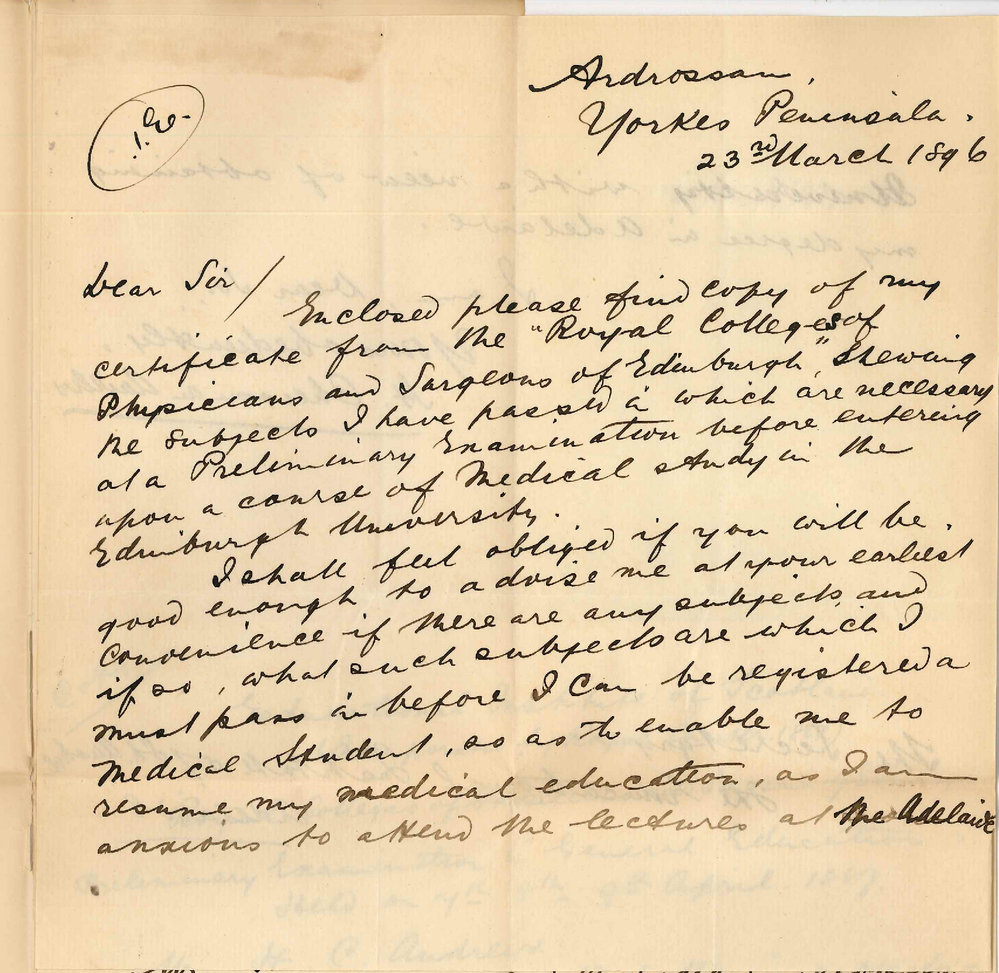 Ardrossan,
Yorkes Peninsula.
23rd March 1896
Dear Sir/
Enclosed please find copy of my
certificate from the "Royal Colleges of
Physicians and Surgeons of Edinburgh", Shewing
the subjects I have passed in which are necessary
at a Preliminary Examination before entering
upon a course of Medical study in the
Edinburgh University.
I shall feel obliged if you will be.
good enough to advise me at your earliest
convenience if there are any subjects, and
if so, what such subjects are which I
must pass in before I can be registered a
Medical Student, so as to enable me to
resume my medical education, as I am
anxious to attend the lectures at the Adelaide